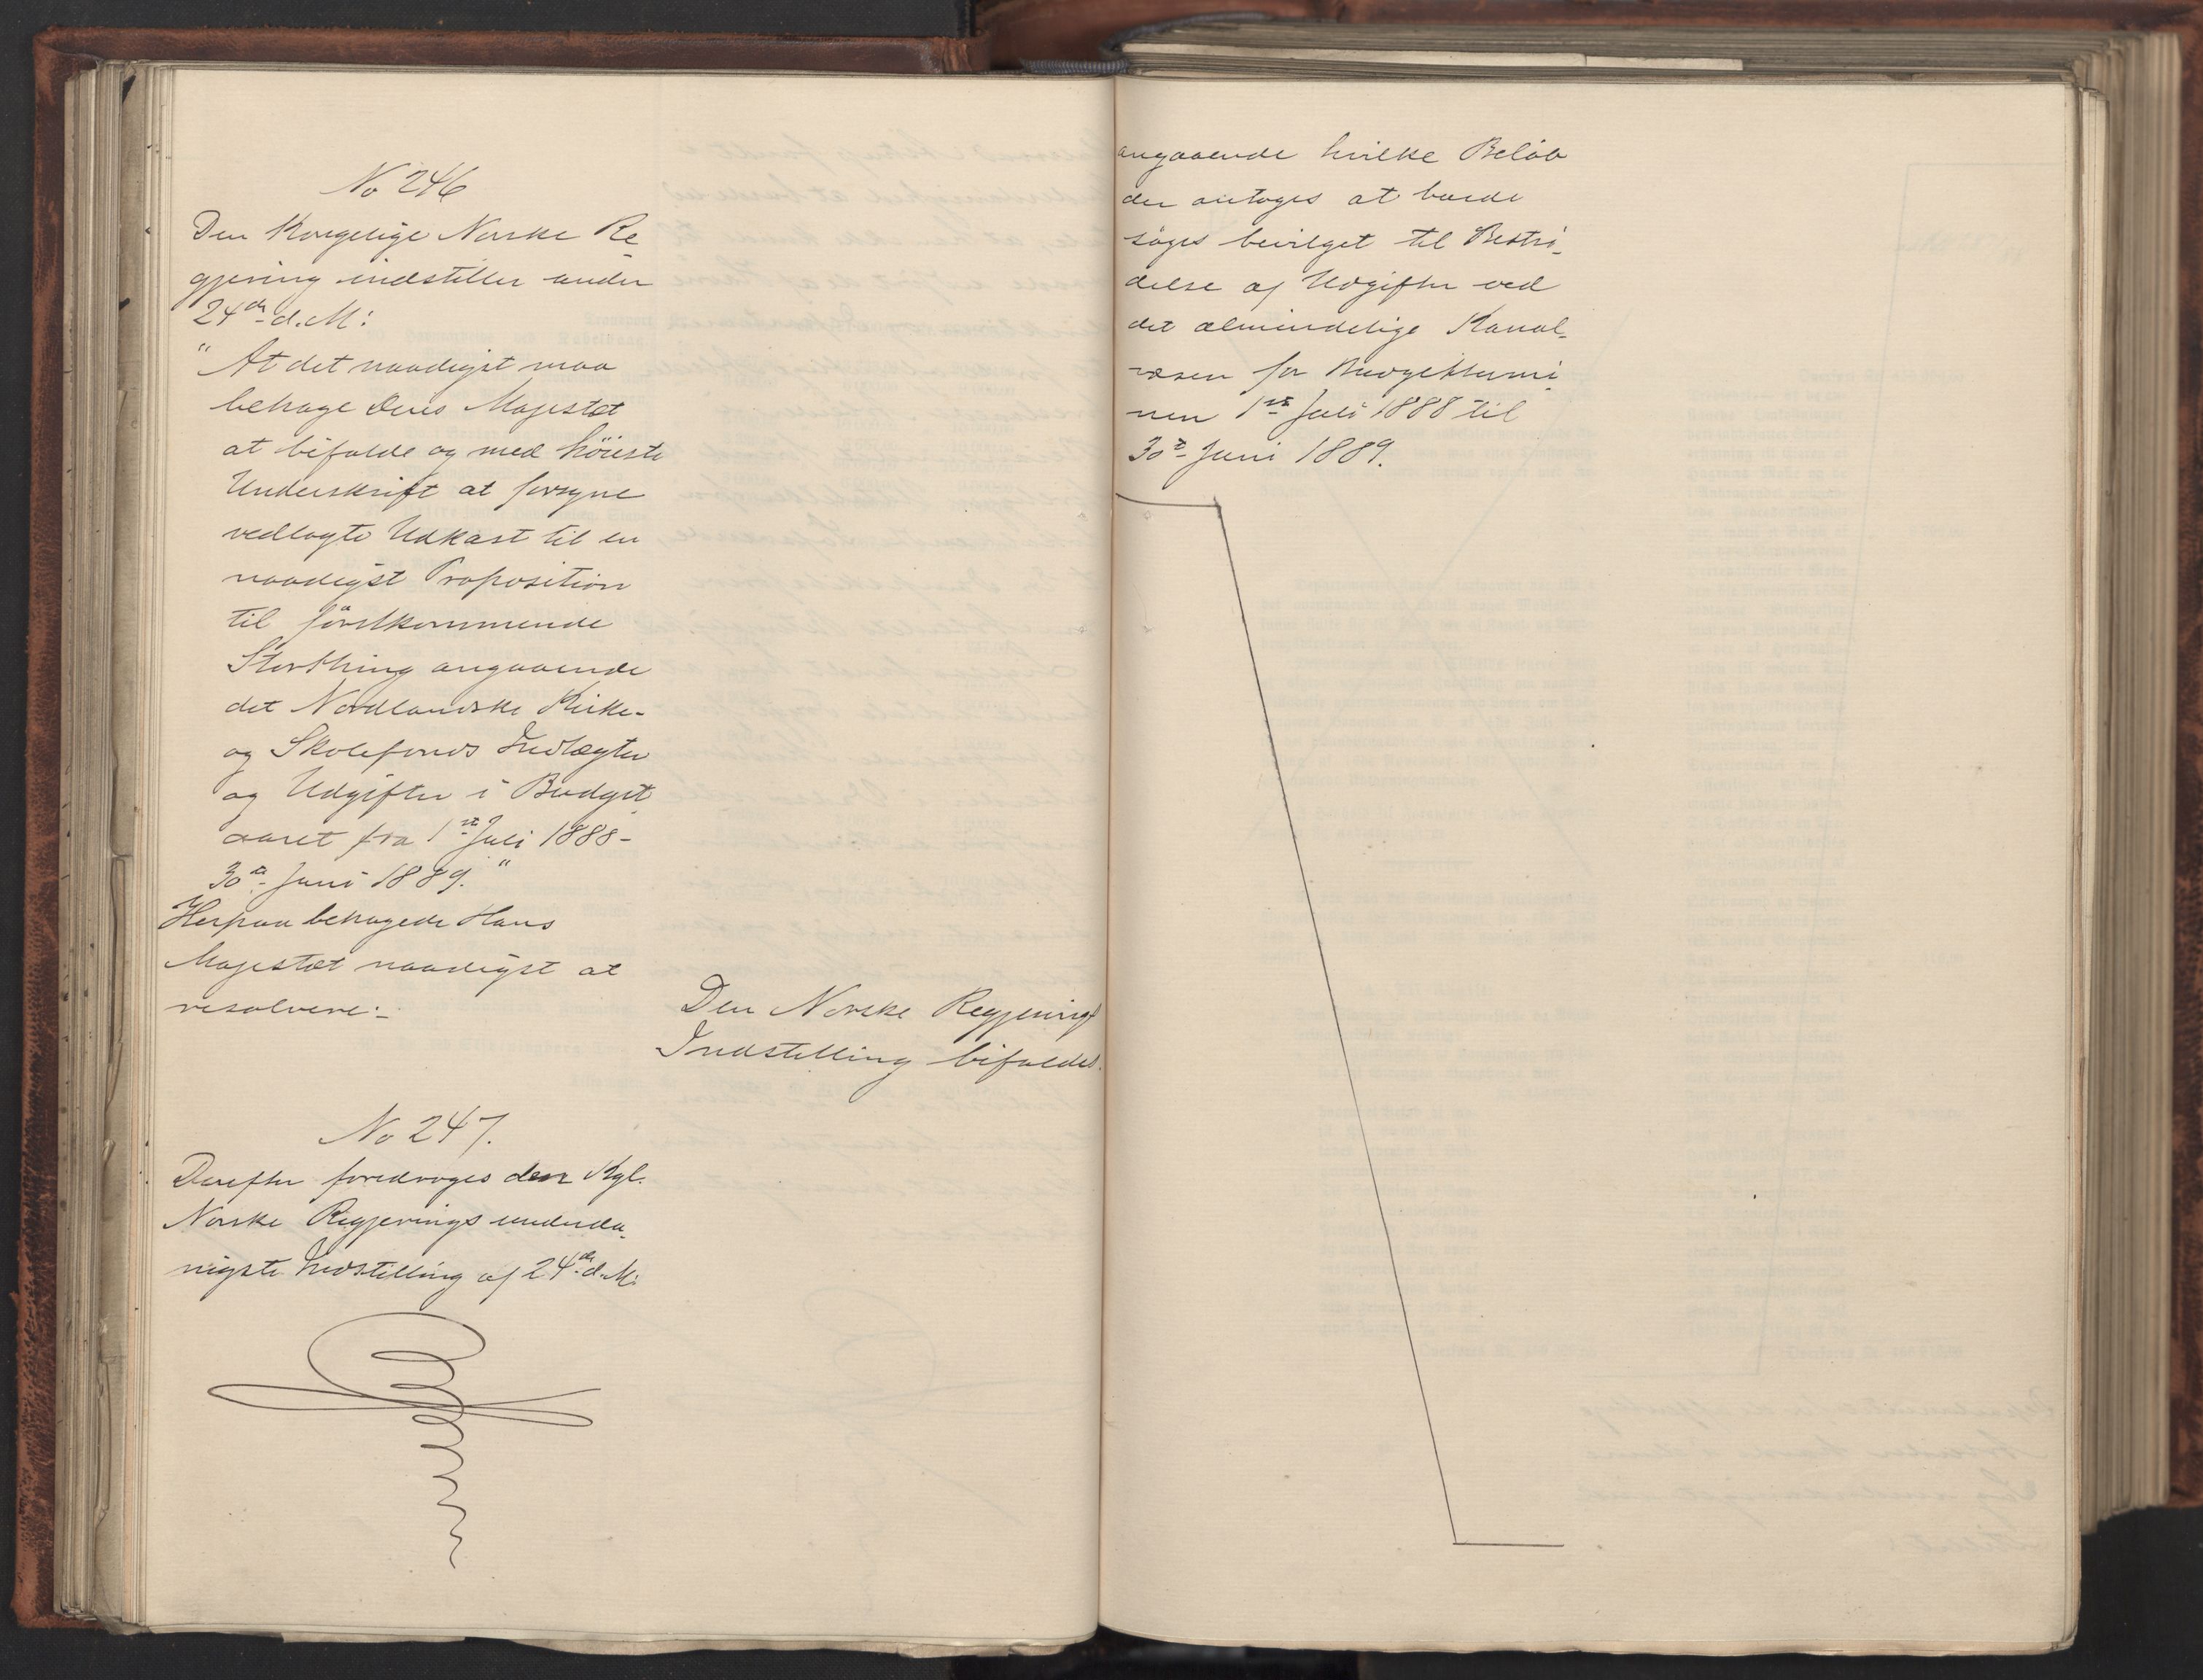 No 246
Den Kongelige Norske Re-
gjering indstiller under
24de d. M:
"At det naadigst maa
behage Deres Majestæt
at bifalde og med høieste
Underskrift at forsyne
vedlagte Udkast til en
naadigst Proposition
til førstkommende
Storthing angaaende
det Nordlandske Kirke-
og Skolefonds Indtægter
og Udgifter i Budget
aaret fra 1ste Juli 1888-
30te Juni 1889."
Herpaa behagede Hans
Majestæt naadigst at
resolvere:-
Den Norske Regjerings
Indstilling bifaldes.
No 247.
Derefter foredroges den Kgl.
Norske Regjerings underda-
nigste Indstilling af 24de d. M.
angaaende hvilke Beløb
der antages at burde
søges bevilget til Bestri-
delse af Udgifter ved
det almindelige Kanal-
væsen for Budgettermi-
nen 1ste Juli 1888 til
30te Juni 1889.